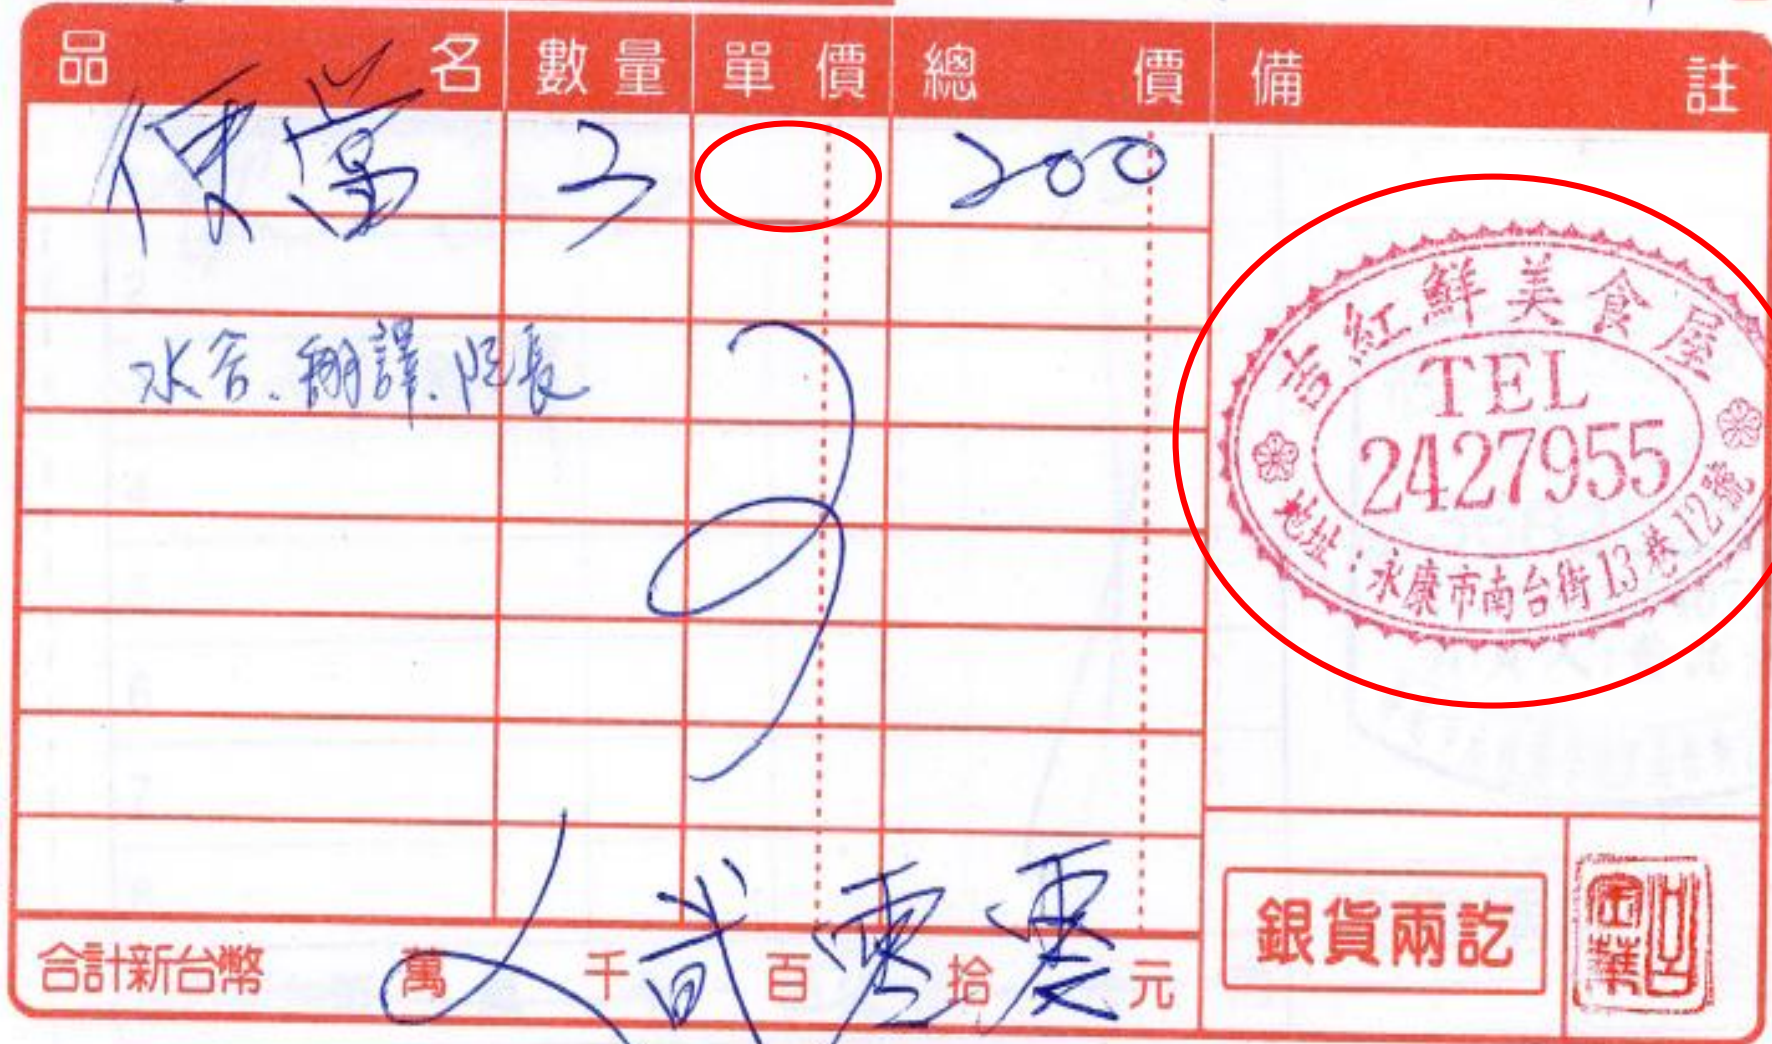 品名 數量 單價 總價 備註
便當 3 200
水合、翻譯、院長
吉紅鮮美食屋
TEL
2427955
地址：永康市南台街13巷12號
合計新台幣 萬 千 貳 百 零 拾 零 元
銀貨兩訖